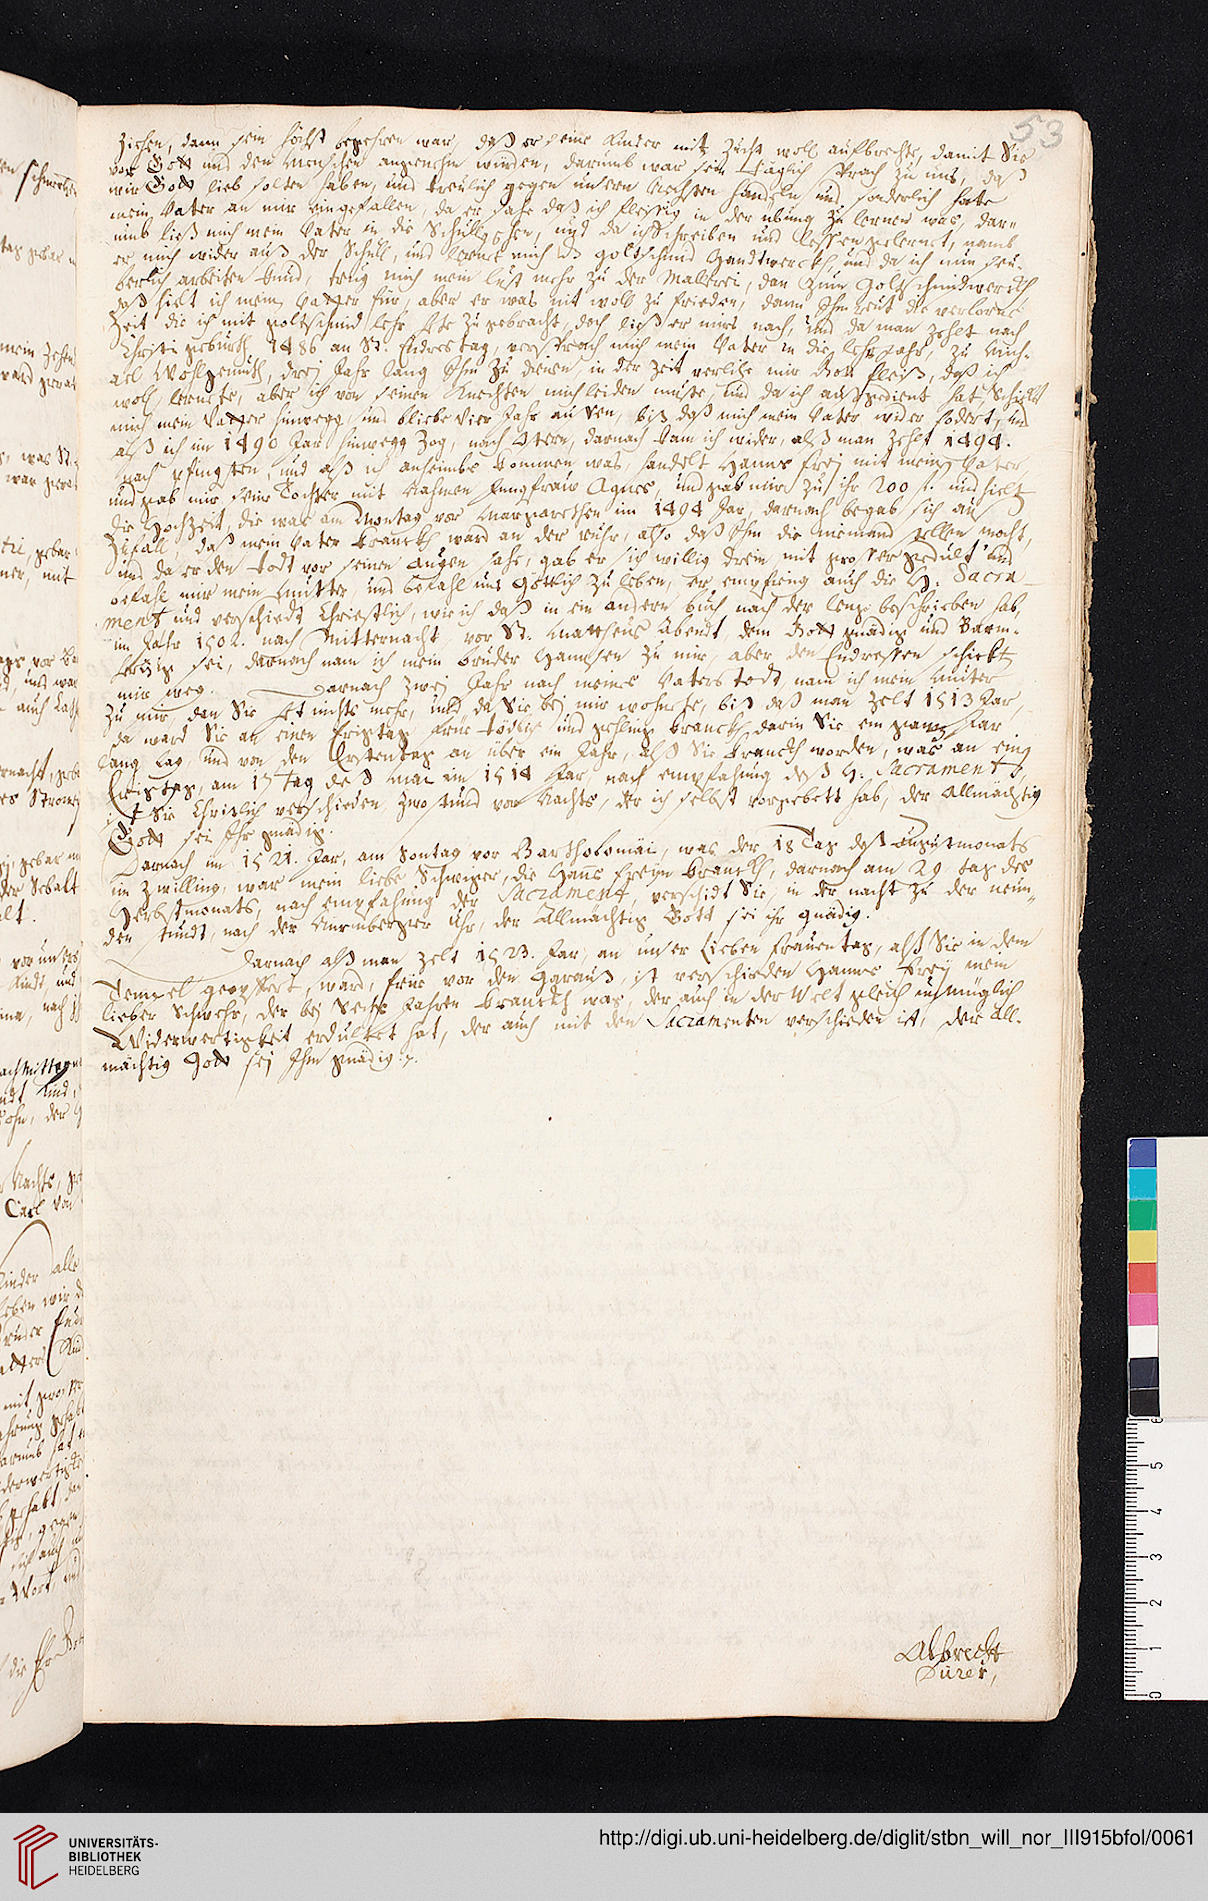 53
ziehen, dann sein höchst begehren war, daß er seine Kinder mit Zucht woll aufbrechte, damit Sie
vor Gott und den Menschen angenehm würden, darumb war sein täglich sprach zu uns, daß
wir Gott lieb solten haben, und treulich gegen unsern Nechsten handeln und sonderlich hate
mein Vater an mir ein gefallen, da er sahe daß ich fleissig in der übung zu lernen was, dar-
umb ließ mich mein Vater in die Schull gehen, und da ich schreiben und lessen gelernet, namb
er mich wider auß der Schull, und lernet mich dz goltschmid Handtwerckh, und da ich nun seu-
berlich arbeiten kund, trug mich mein lust mehr zu der Mallerei, dan zum Goltschmidwerckh
daß hielt ich meinen Vatter für, aber er was nit woll zu frieden, dann Ihm reut die verlorne
Zeit die ich mit goltschmid lehr hete zugebracht, doch ließ er mirs nach, und da man zehlt nach
Christi geburth 1486 an St. Endres tag, versprach mich mein Vater in die lehr Jahr, zu Mich-
ael Wohlgemuth, drei Jahr lang Ihm zu dienen, in der Zeit verlihe mir Gott fleiß, daß ich
woll lernete, aber ich von seinen Knechten mich leiden muste, und da ich außgedient hat schickt
mich mein Vatter hinwegg, und bliebe vier Jahr aussen, biß daß mich mein Vater wider fodert, und
alß ich im 1490 Jar hinwegg zog, nach Ostern, darnach kam ich wider, alß man zehlt 1494.
nach pfingsten, und alß ich anheimbs kommen was, handelt Hanns Frej mit mein Vater,
und gab mir seine Tochter mit Nahmen Jungfraw Agnes, und gab mir zu ihr 200 fl. und hielt
die Hochzeit, die war am Montag vor Margarethen im 1494 Jar, darnach begab sich auß
Zufall, daß mein Vater kranckh ward an der ruhr, also daß Ihm die niemand stellen mocht,
und da er den todt vor seinen augen sahe, gab er sich willig drein mit grosser gedult und
befahl mir mein Mutter, und befahl uns Göttlich zu leben, er empfieng auch die H. Sacra-
ment und verschiedt Christlich, wie ich daß in ein andern buch nach der leng beschrieben hab,
im Jahr 1502. nach Mitternacht vor St. Mattheus Abendt, dem Gott gnädig und Barm-
hertzig sei, darnach nam ich mein bruder Hannsen zu mir, aber den Endressen schickt
mir weg. Darnach zwej Jahr nach meines Vaters todt, nam ich mein Muter
zu mir, dan Sie het nichts mehr, und da Sie bej mir wohnete, biß daß man zelt 1513 Jar,
da ward Sie an einen Eristag frue tödlich und gehling kranckh darin Sie ein gantz Jar
lang lag, und von den Erstentag an über ein Jahr, alß Sie kranckh worden, was an eing
Eristag, am 17 tag deß Mai im 1514 Jar, nach empfahung deß H. Sacraments,
ist Sie Christlich verschieden zwo stund vor Nachts, der ich selbst vorgebett hab, der Allmächtig
Gott sei Ihr gnädig.
Darnach im 1521. Jar, am Sontag vor Bartholomäi, was der 18 Tag deß Augustmonats
im Zwilling, war mein liebe Schwiger, die Hans Freyin kranckh, darnach am 29 tag des
Herbstmonats, nach empfahung der Sacrament, verschidt Sie, in der nacht zu der neun-
den stundt, nach der Nurmberger Uhr, der Allmächtig Gott sei ihr gnädig.
Darnach alß man zelt 1523. Jar, an unser Lieben frauen tag, alß Sie in dem
Tempel geopffert ward, frue vor den Garauß, ist verschieden Hanns Frej mein
lieber Schweher, der bej Sechs Jahren kranckh war, der auch in der Welt gleich unmüglich
Widerwertigkeit erdultet hat, der auch mit den Sacramenten verschieden ist, der All-
mächtig Gott sej Ihm gnädig.
Albrecht
Dürer,
UNIVERSITÄTS-
BIBLIOTHEK
HEIDELBERG
http://digi.ub.uni-heidelberg.de/diglit/stbn_will_nor_III915bfol/0061